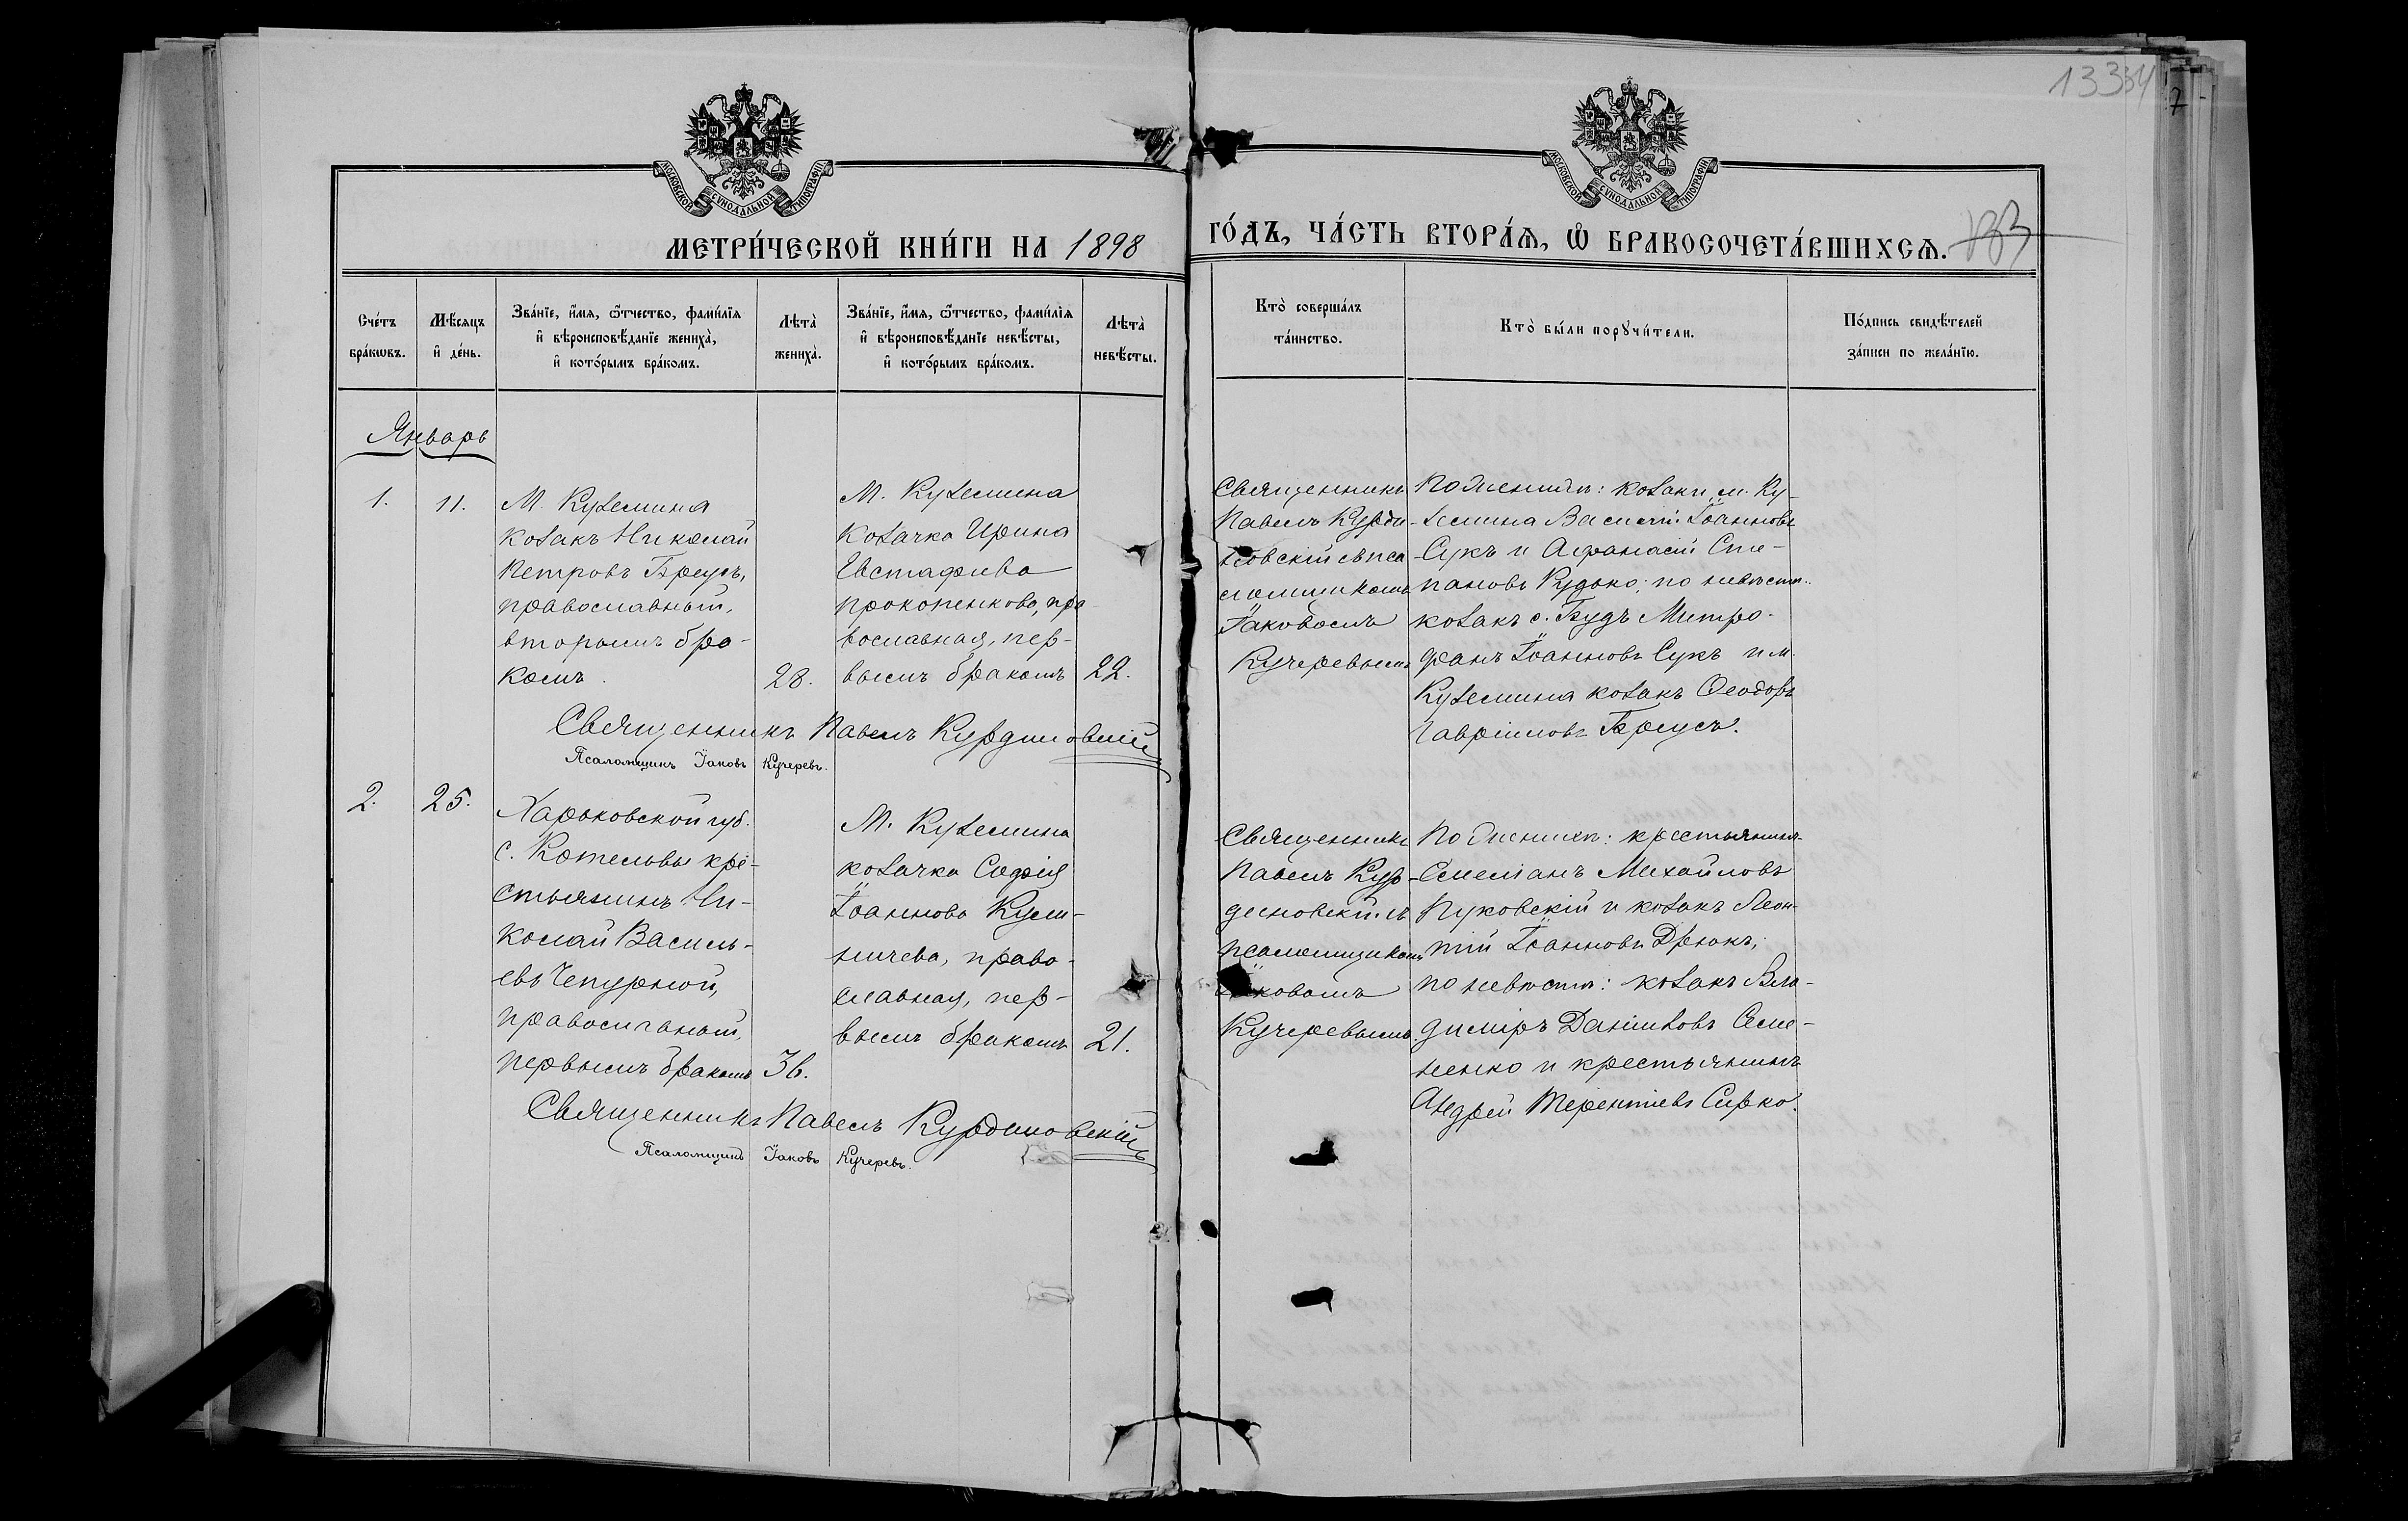 13334
7
МОСКОВСКОЙ СѴНОДАЛЬНОЙ ТИПОГРАФІИ
МОСКОВСКОЙ СѴНОДАЛЬНОЙ ТИПОГРАФІИ
МЕТРИ́ЧЕСКОЙ КНИ́ГИ НА 1898
ГО́ДЪ, ЧА́СТЬ ВТОРА́Ѧ, Ѡ БРАКОСОЧЕТА́ВШИХСѦ. 133
Сче́тъ бра́кѡвъ.
Мѣ́сяцъ и҆ де́нь.
Зва́нїе, и҆́мѧ, ѻ҆́тчество, фами́лїѧ
и҆ вѣроисповѣ́данїе жениха̀,
и҆ кото́рымъ бра́комъ.
Лѣта̀ жениха̀.
Зва́нїе, и҆́мѧ, ѻ҆́тчество, фами́лїѧ
и҆ вѣроисповѣ́данїе невѣ́сты,
и҆ кото́рымъ бра́комъ.
Лѣта̀ невѣ́сты.
Кто̀ соверша́лъ
та́инство.
Кто̀ бы́ли порꙋчи́тели.
По́дпись свидѣ́телей
за́писи по жела́нїю.
Январь
1.
11.
М. Куземина
козакъ Николай
Петровъ Бреусъ,
православный,
вторымъ бра-
комъ.
28.
М. Куземина
козачка Ирина
Евстафиева
Прокопенкова, пра-
вославная, пер-
вымъ бракомъ
22.
Священникъ
Павелъ Курди-
новскій съ пса
ломщикомъ
Іаковомъ
Кучеревымъ
По женихѣ: козаки м. Ку-
земина Василій Іоанновъ
Сукъ и Афанасій Сте-
пановъ Кудько; по невѣстѣ
козакъ с. Будъ Митро-
фанъ Іоанновъ Сукъ и м.
Куземина козакъ Ѳеодоръ
Гавріиловъ Бреусъ.
Священникъ Павелъ Курдиновскій
Псаломщикъ Іаковъ Кучеревъ.
2.
25.
Харьковской губ.
с. Котельвы кре-
стьянинъ Ни-
колай Василь-
евъ Чепурной,
православный,
первымъ бракомъ
36.
М. Куземина
козачка Софія
Іоаннова Кузь-
мичева, право-
славная, пер-
вымъ бракомъ
21.
Священникъ
Павелъ Кур-
диновскій съ
псаломщикомъ
Іаковомъ
Кучеревымъ.
По женихѣ: крестьянинъ
Семеіанъ Михайловъ
Пуковскій и козакъ Леон-
тій Іоанновъ Дрюкъ;
по невѣстѣ: козакъ Вла-
диміръ Даніиловъ Семе-
ненко и крестьянинъ
Андрей Терентіевъ Сирко.
Священникъ Павелъ Курдиновскій
Псаломщикъ Іаковъ Кучеревъ.